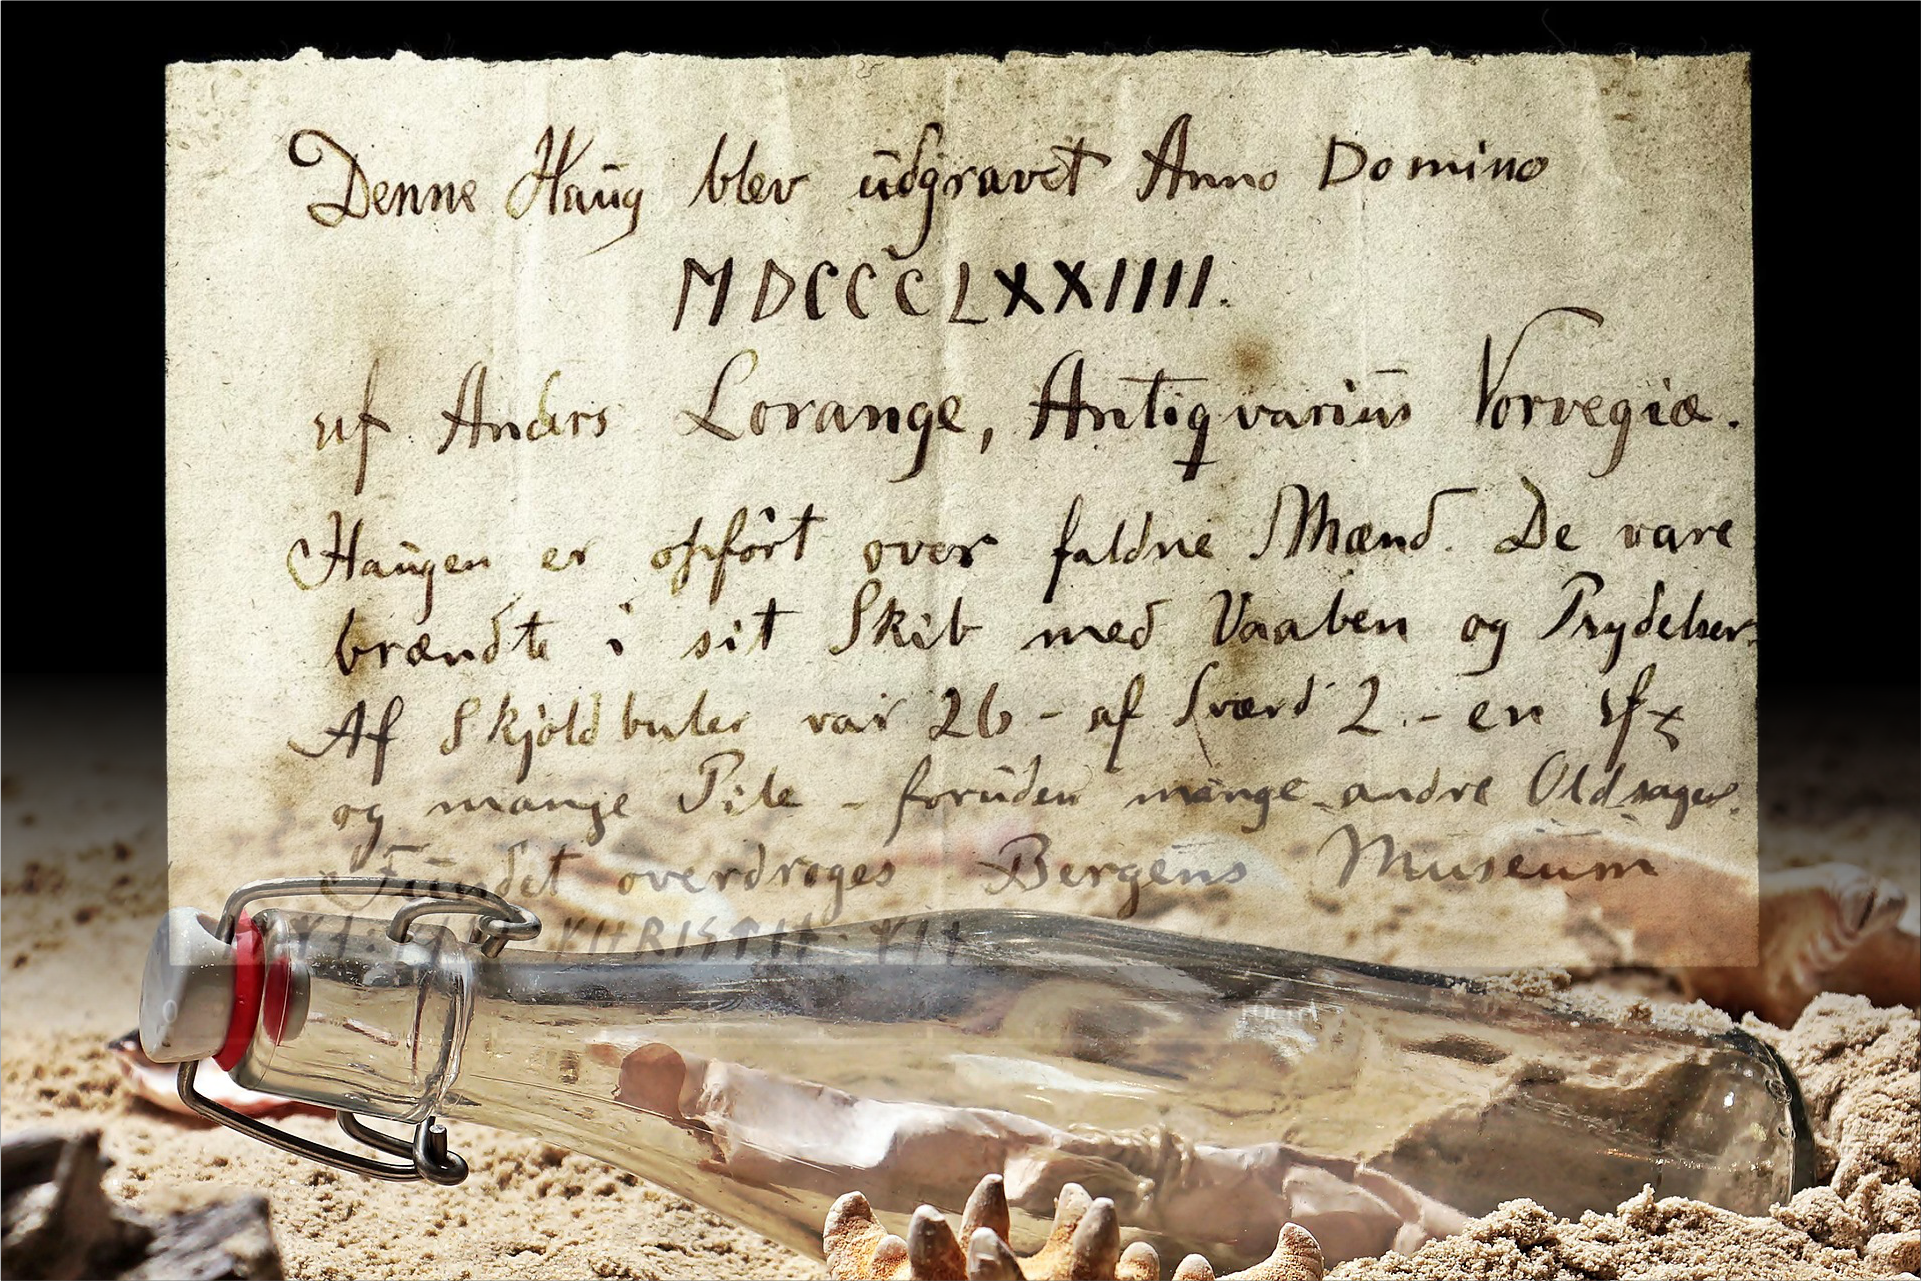 Denne Haug blev udgravet Anno Domino
MDCCCLXXIIII.
af Anders Lorange, Antiqvarius Norvegiæ.
Haugen er opført over faldne Mænd. De vare
brændte i sit Skib med Vaaben og Prydelser.
Af Skjoldbuler var 26 - af Sværd 2 - en
og mange Pile - foruden mange andre Oldsager.
Fundet overdroges Bergens Museum